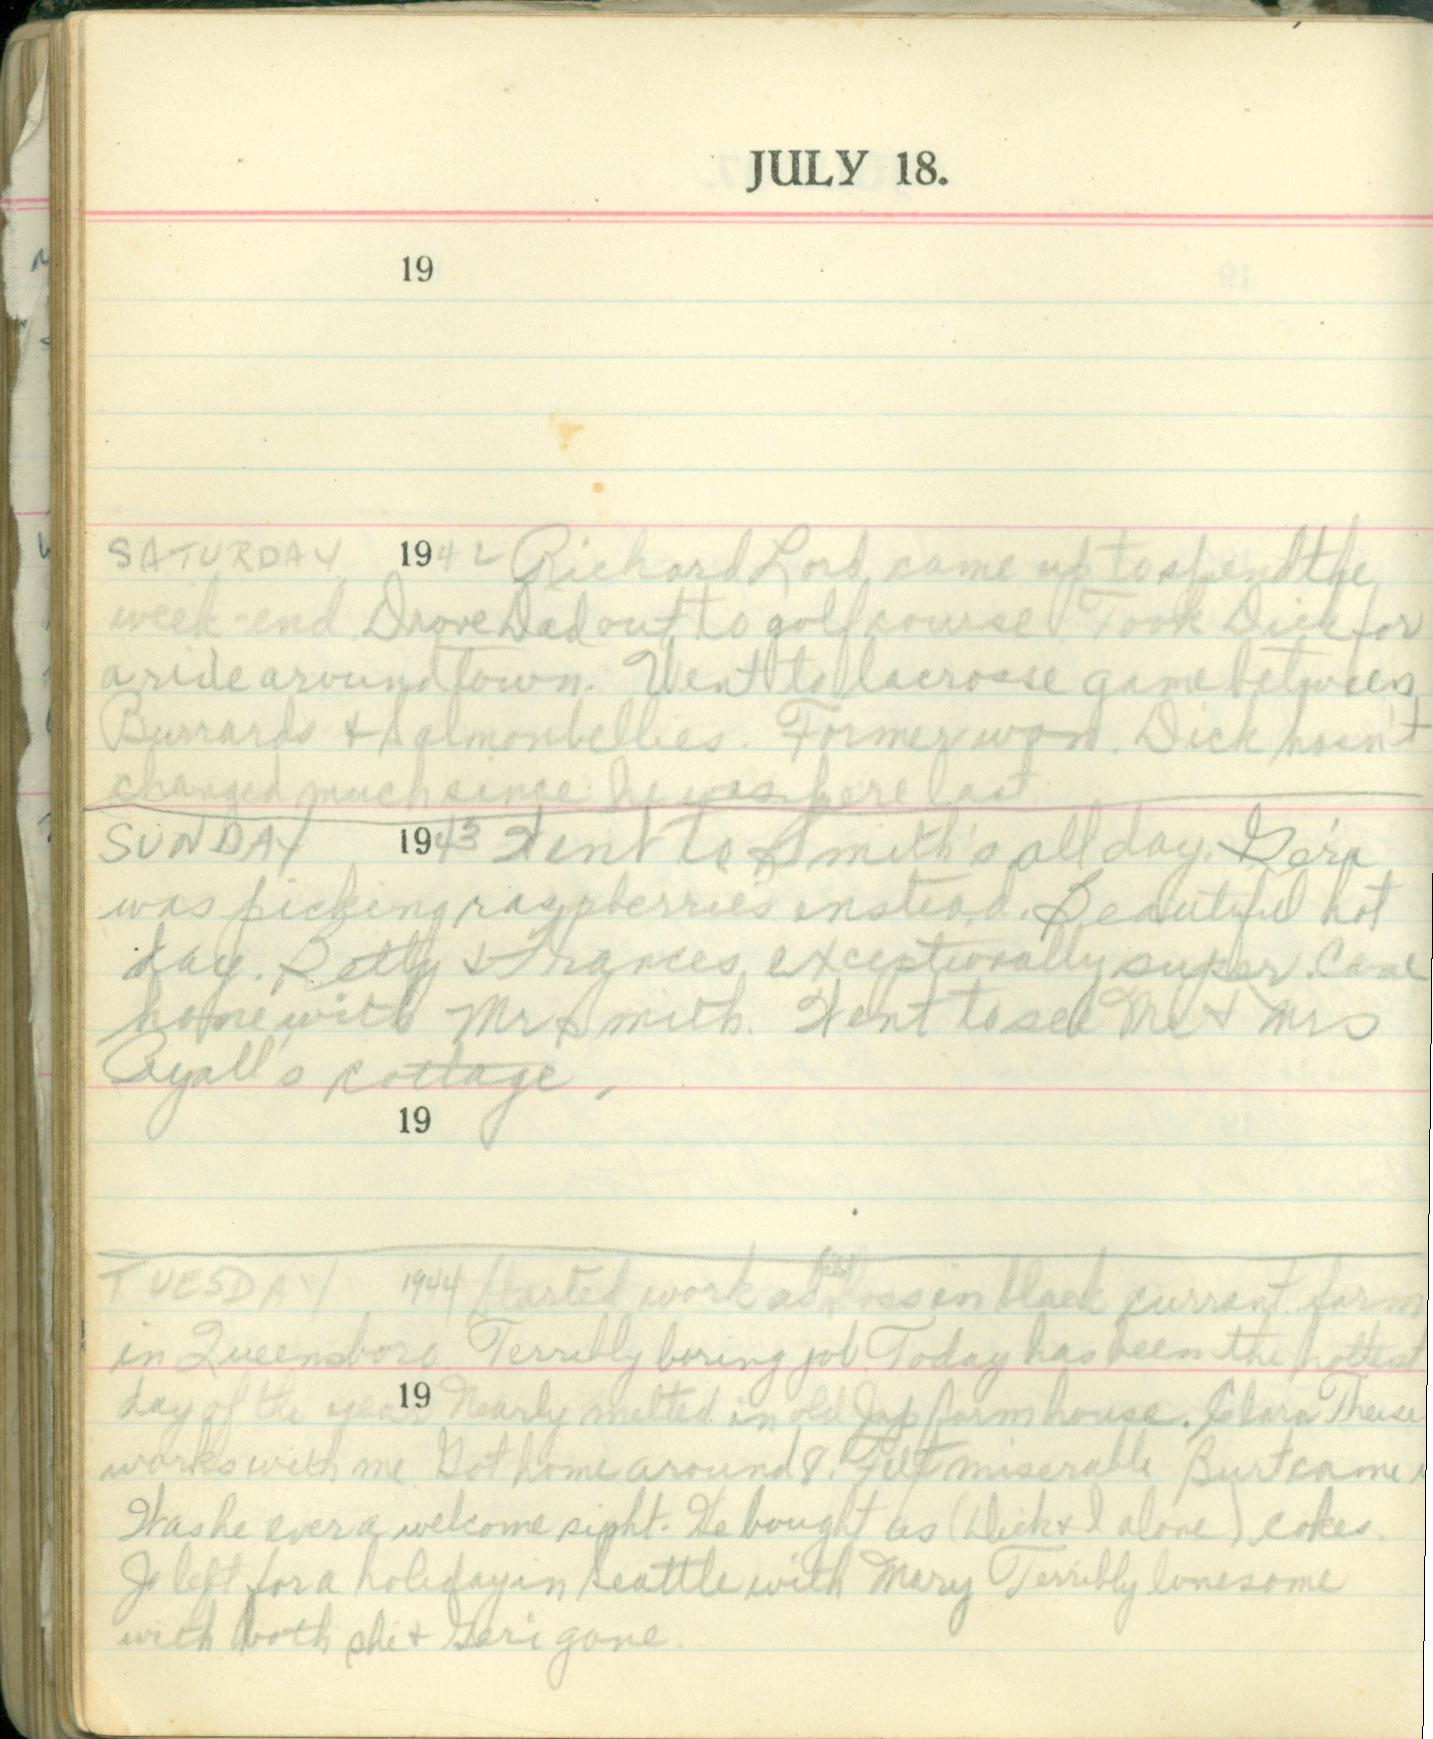 JULY 18.
19
SATURDAY 1942 Richard Lord came up to spend the
week-end. Drove Dad out to golf course. Took Dick for
a ride around town. Went to lacrosse game between
Burrards & Salmonbellies. Former won. Dick hasn't
changed much since he was here last
SUNDAY 1943 Went to Smith's all day. Geri
was picking raspberries instead. Beautiful hot
day. Betty & Frances exceptionally super. Came
home with Mr Smith. Went to see Mr & Mrs
Ryall's cottage.
19
TUESDAY 1944 Started work as boss in black currant farm
in Queensboro. Terribly boring job. Today has been the hottest
day of the year. Nearly melted in old Jap farm house. Clara
19
works with me. Got home around 8. Felt miserable Burt came
Was he ever a welcome sight. He bought us (Dick & I alone) cokes.
Jo left for a holiday in Seattle with Mary Terribly lonesome
with both she & Geri gone.